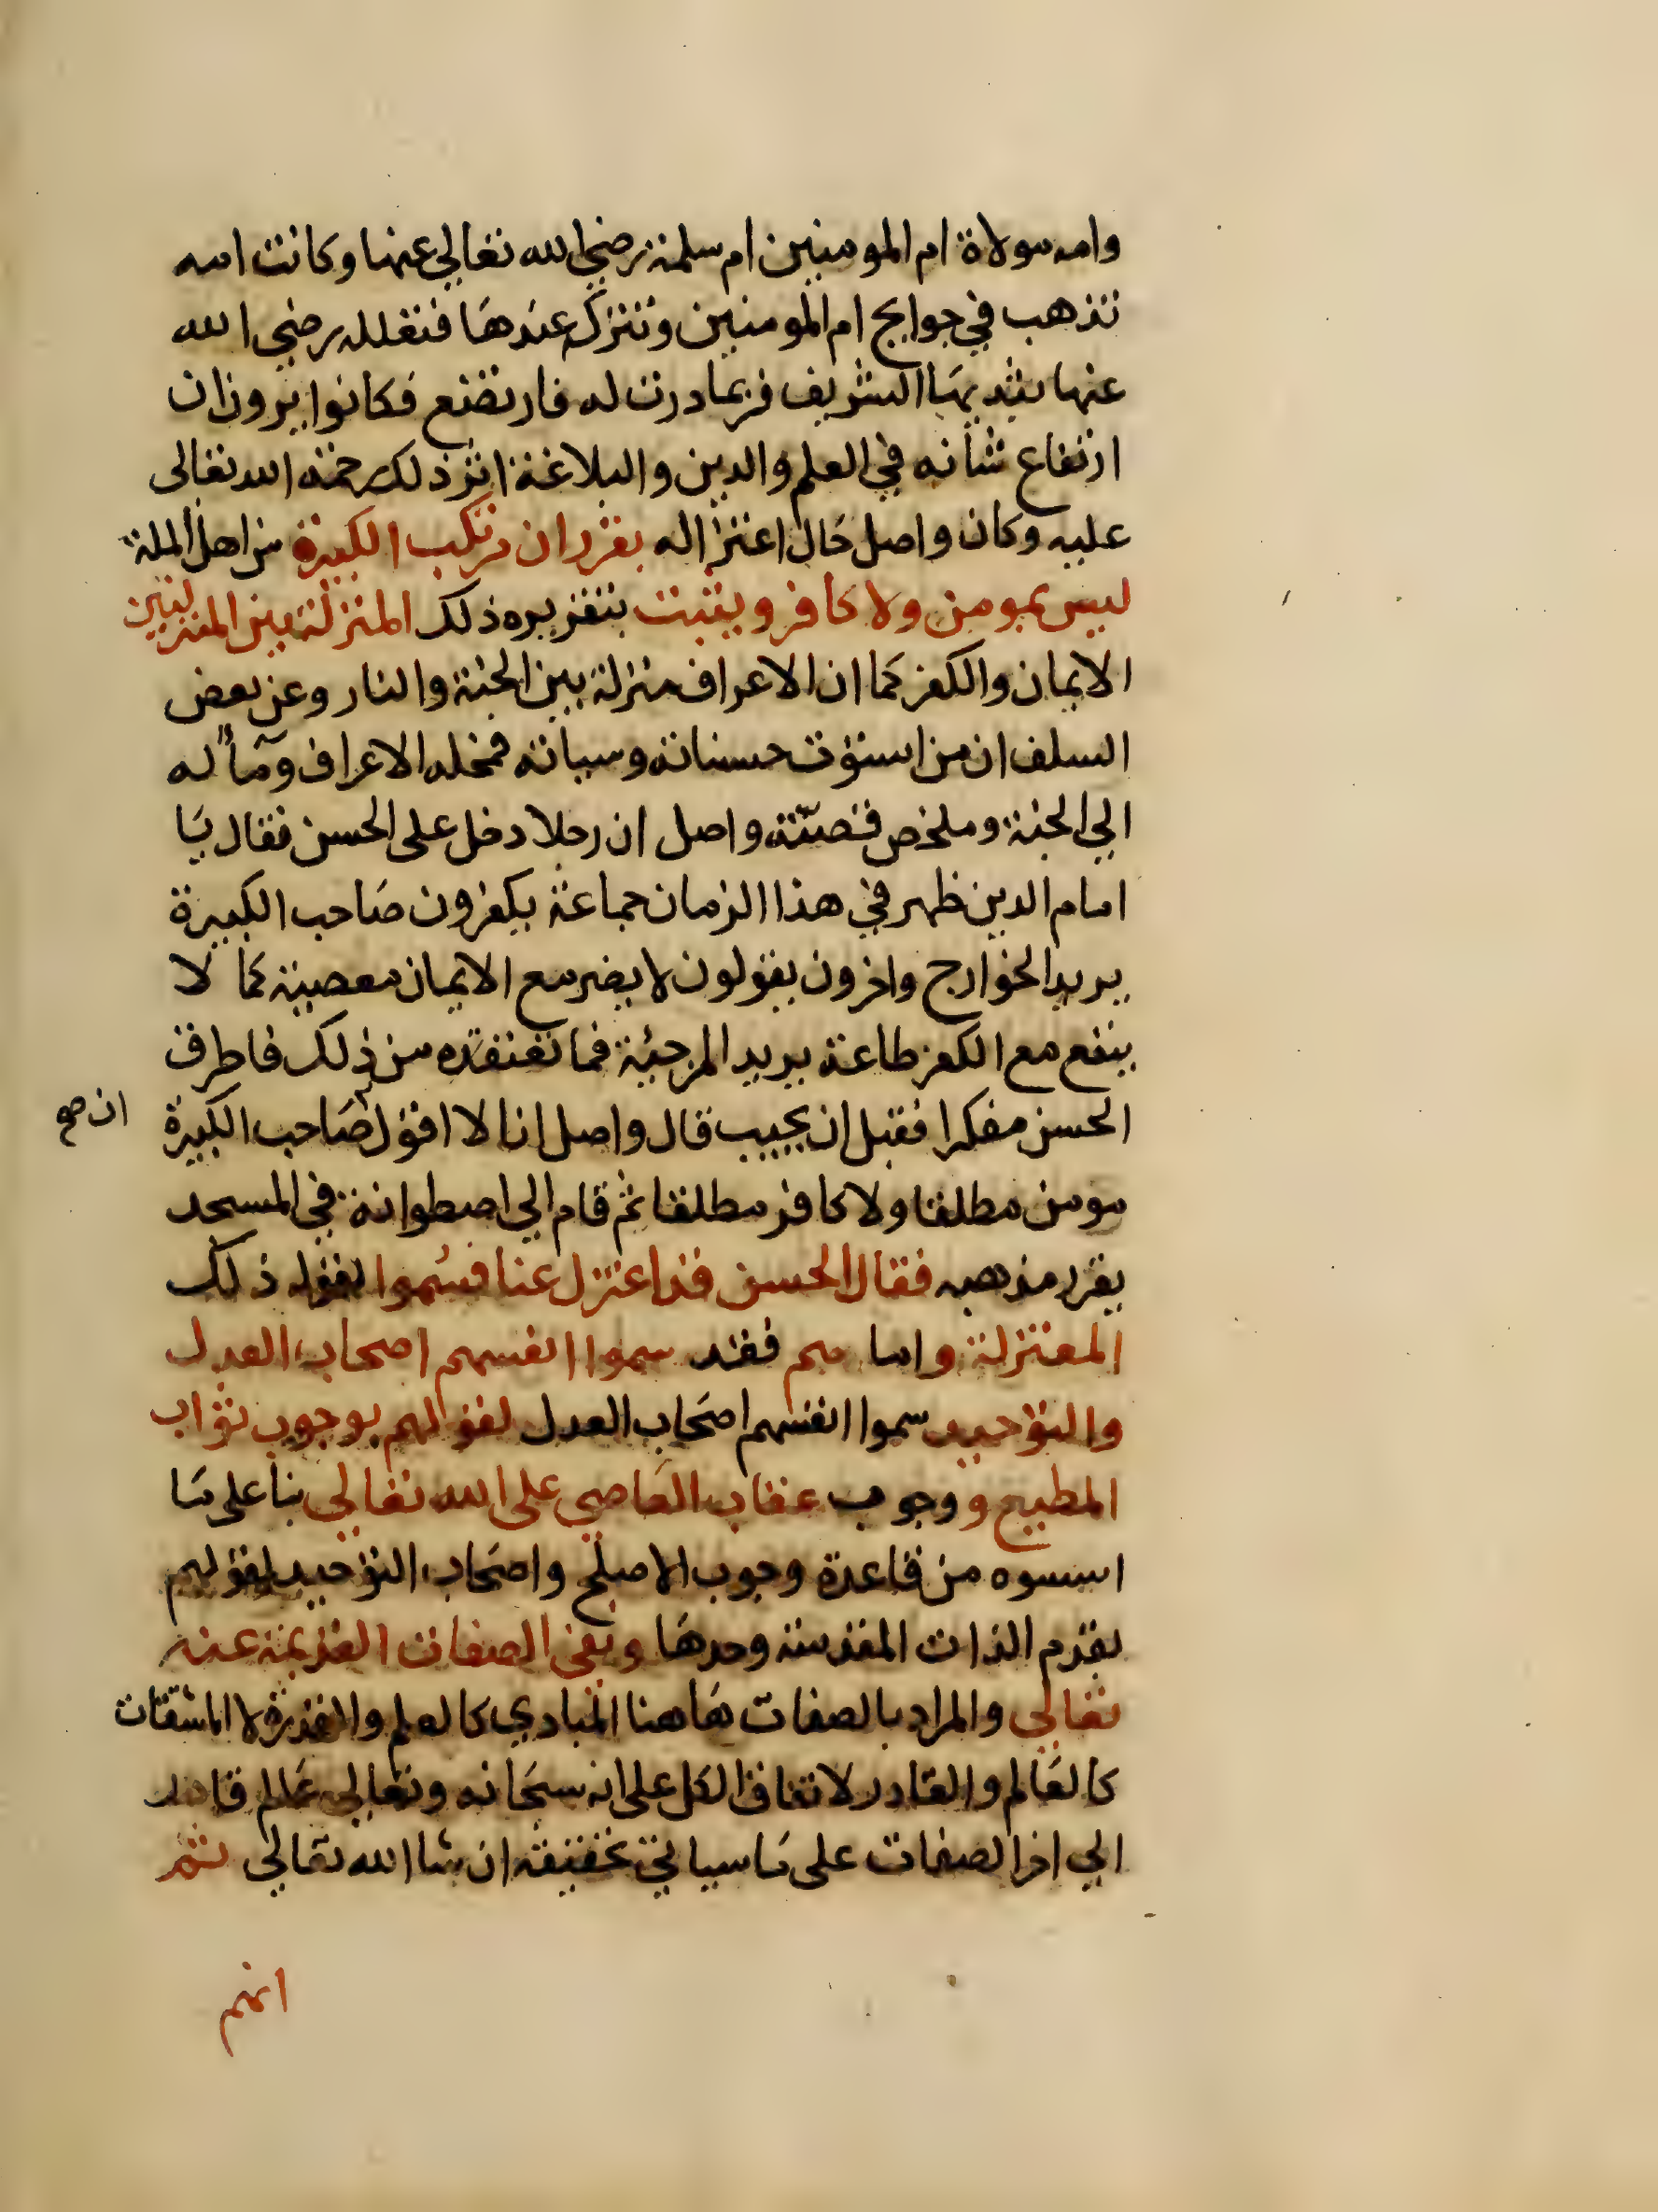 وامه مولاة ام المومنين ام سلمة رضي الله تعالي عنها وكانت امه
تذهب في حوايج ام المومنين وتتركه عندها فتعلله رضي الله
عنها بثديها الشريف فربما درت له فارتضع فكانوا يرون ان
ارتفاع شأنه في العلم والدين والبلاغة اثر ذلك رحمة الله تعالى
عليه وكان واصل حال اعتزاله يقرر ان مرتكب الكبيرة من اهل الملة
ليس بمومن ولا كافر ويثبت بتقريره ذلك المنزلة بين المنزلتين
الايمان والكفر كما ان الاعراف منزلة بين الجنة والنار وعن بعض
السلف ان من استوت حسناته وسياته فمحله الاعراف ومآله
الي الجنة وملخص قصته واصل ان رجلا دخل على الحسن فقال يا
امام الدين ظهر في هذا الزمان جماعة يكفرون صاحب الكبيرة
يريد الخوارج واخرون يقولون لا يضر مع الايمان معصية كما لا
ينفع مع الكفر طاعة يريد المرجئة فما تعتقده من ذلك فاطرق
الحسن مفكرا فقبل ان يجيب قال واصل انا لا اقول صاحب الكبيرة
ان صح
مومن مطلقا ولا كافر مطلقا ثم قام الي اصطوانة في المسجد
يقرر مذهبه فقال الحسن قد اعتزل عنا فسموا لقوله ذلك
المعتزلة واما هم فقد سموا انفسهم اصحاب العدل
والتوحيد سموا انفسهم اصحاب العدل لقولهم بوجوب ثواب
المطيع ووجوب عقاب العاصي على الله تعالي بنا على ما
اسسوه من قاعدة وجوب الاصلح واصحاب التوحيد لقولهم
بقدم الذات المقدسة وحدها ونفي الصفات القديمة عنه
تعالي والمراد بالصفات هاهنا المبادي كالعلم والقدرة لا المشتقات
كالعالم والقادر لاتفاق الكل على انه سبحانه وتعالي عالم قادر
الي اخر الصفات على ما سياتي تحقيقه ان شا الله تعالي ثم
انهم